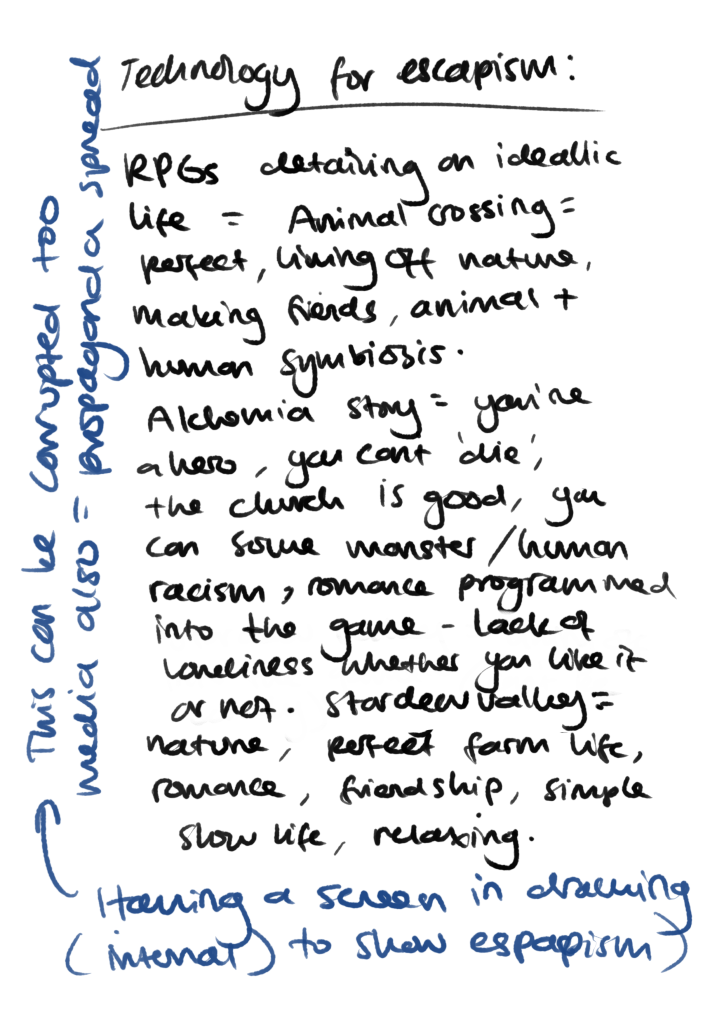 Technology for escapism:
RPGs detailing an ideallic
life = Animal crossing =
perfect, living off nature,
making friends, animal +
human symbiosis.
Alchemia story = you're
a hero, you cant 'die',
the church is good, you
can solve monster/human
racism, romance programmed
into the game - lack of
loneliness whether you like it
or not. Stardew valley =
nature, perfect farm life,
romance, friendship, simple
slow life, relaxing.
Having a screen in drawing
(internal) to show espapism)
This can be corrupted too
media also = propaganda spread